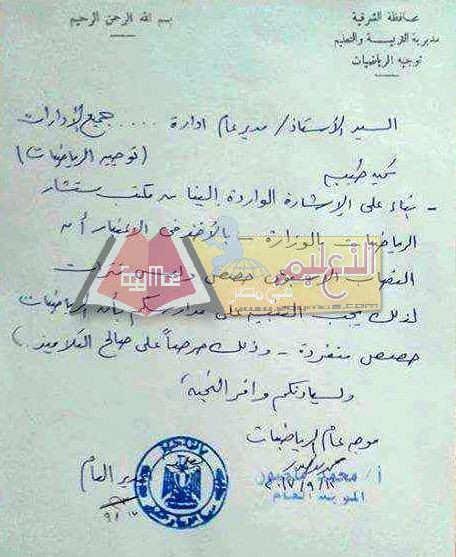 بسم الله الرحمن الرحيم
محافظة الشرقية
مديرية التربية والتعليم
توجيه الرياضيات
السيد الأستاذ / مدير عام ادارة .... جميع الإدارات
(توجيه الرياضيات)
تحية طيبة
- بناء على الإشارة الواردة إلينا من مكتب مستشار
الرياضيات بالوزارة - بالأخذ في الاعتبار أن
حصص وليس فترات
لذلك يجب التنبيه على مدارسكم بأن الرياضيات
حصص منفردة - وذلك حرصاً على صالح التلاميذ.
ولسيادتكم وافر التحية
موجه عام الرياضيات
مدير العام
أ/ محمد منصور
الموجه العام
التعليم
في مصر